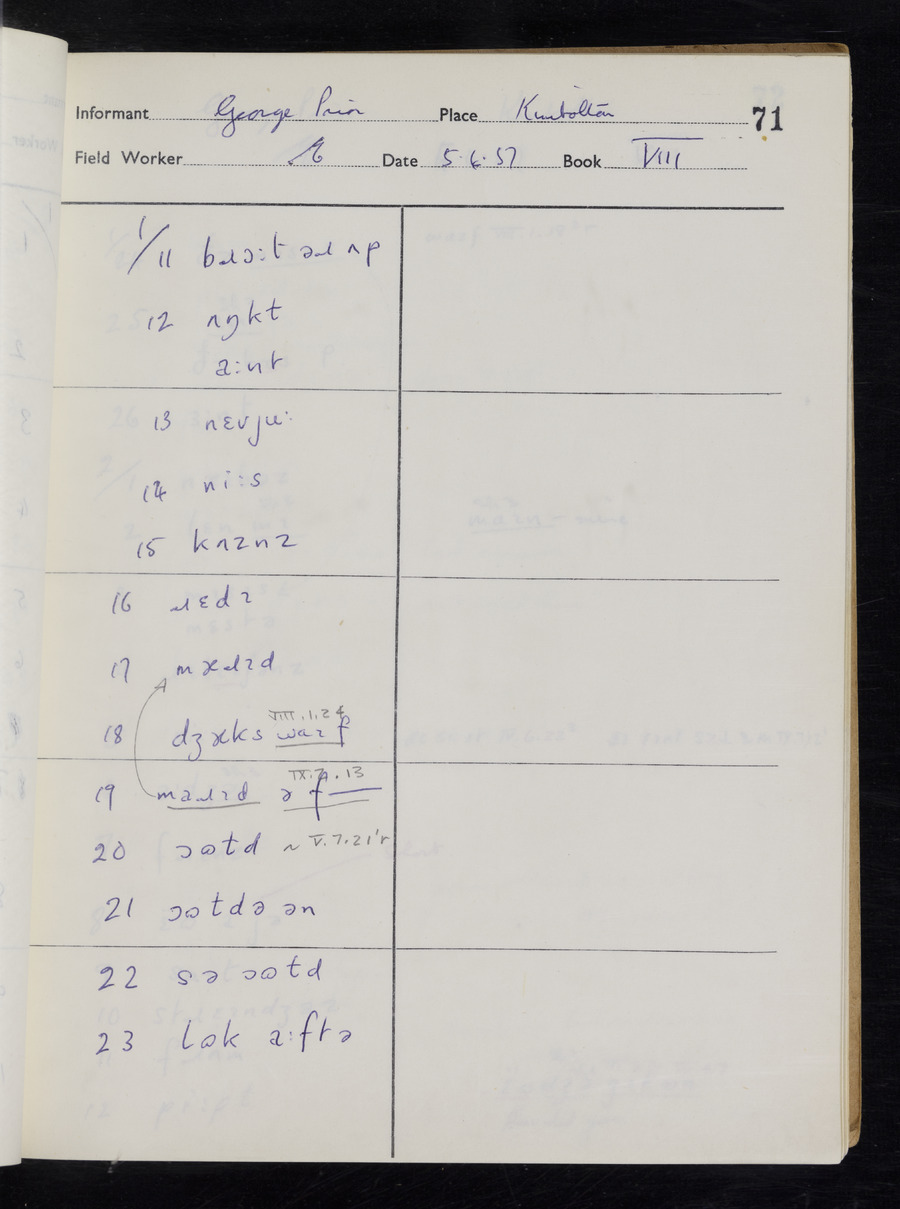 Informant George Prior Place Kimbolton 71
Field Worker Date 5.6.57 Book VIII
1/11 bɹɔ:t əɹ ʌp
12 ʌŋkt
a:nt
13 nɛvju:
14 ni:s
15 kʌznz
16 ɹɛdɪ
17 mæɹɪd
VIII.1.24
18 dʒæks waɪf
IX.7.13
19 maɹɪd ə f
20 ɔʊtd ~ V.7.21'r
21 ɔʊtdə ən
22 sə ɔʊtd
23 lʊk a:ftə